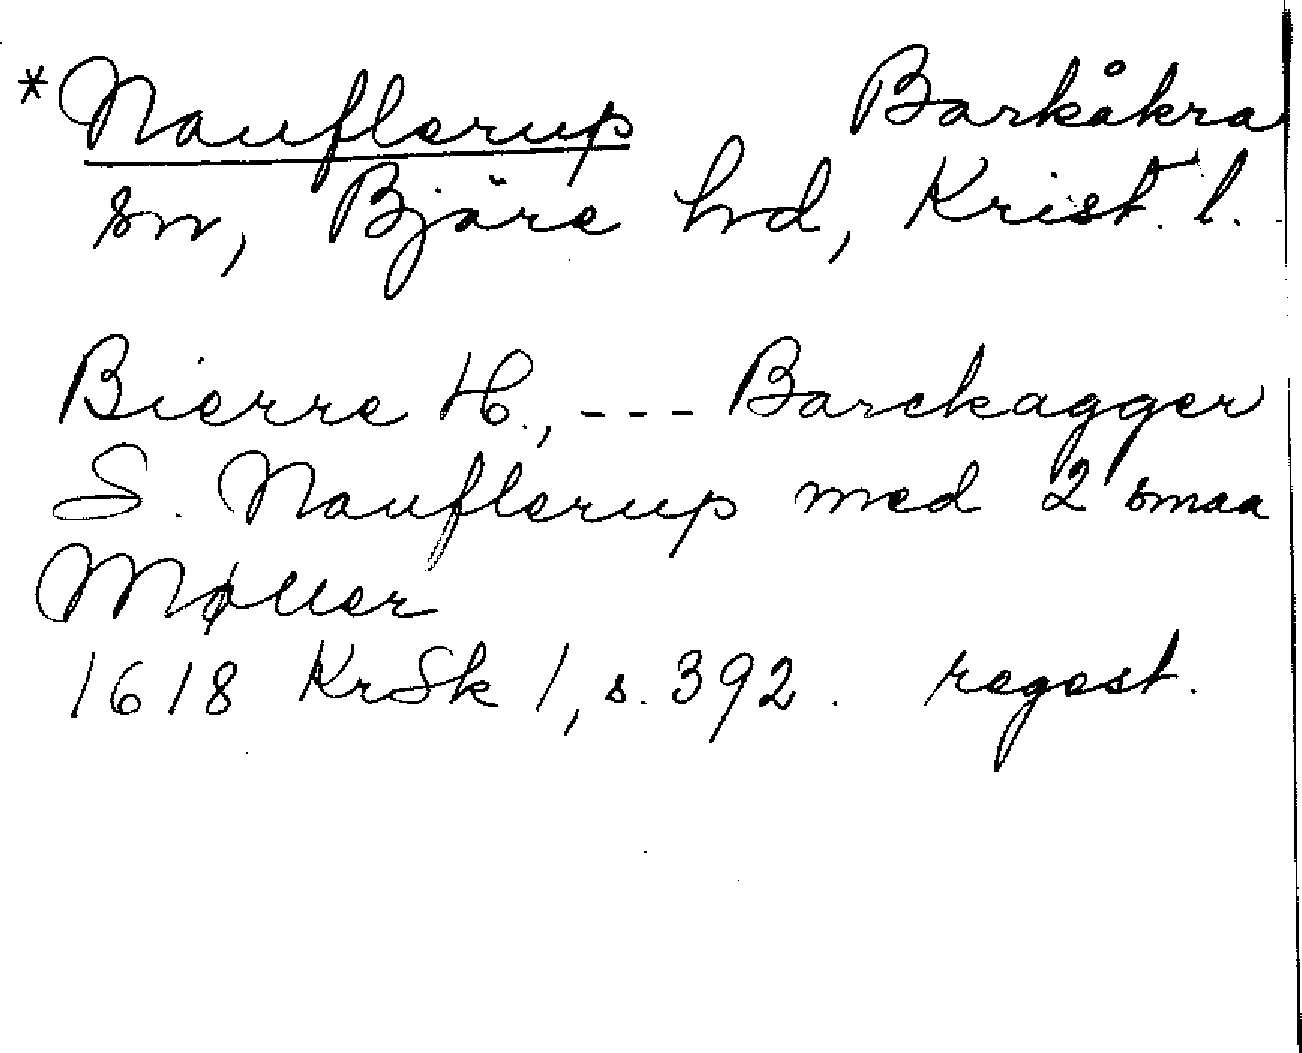 *Nauflerup Barkåkra
sn, Bjäre hd, Krist. l.
Bierre H., --- Barckagger
S. Nauflerup med 2 smaa
Møller
1618 KrSk 1, s. 392. regest.